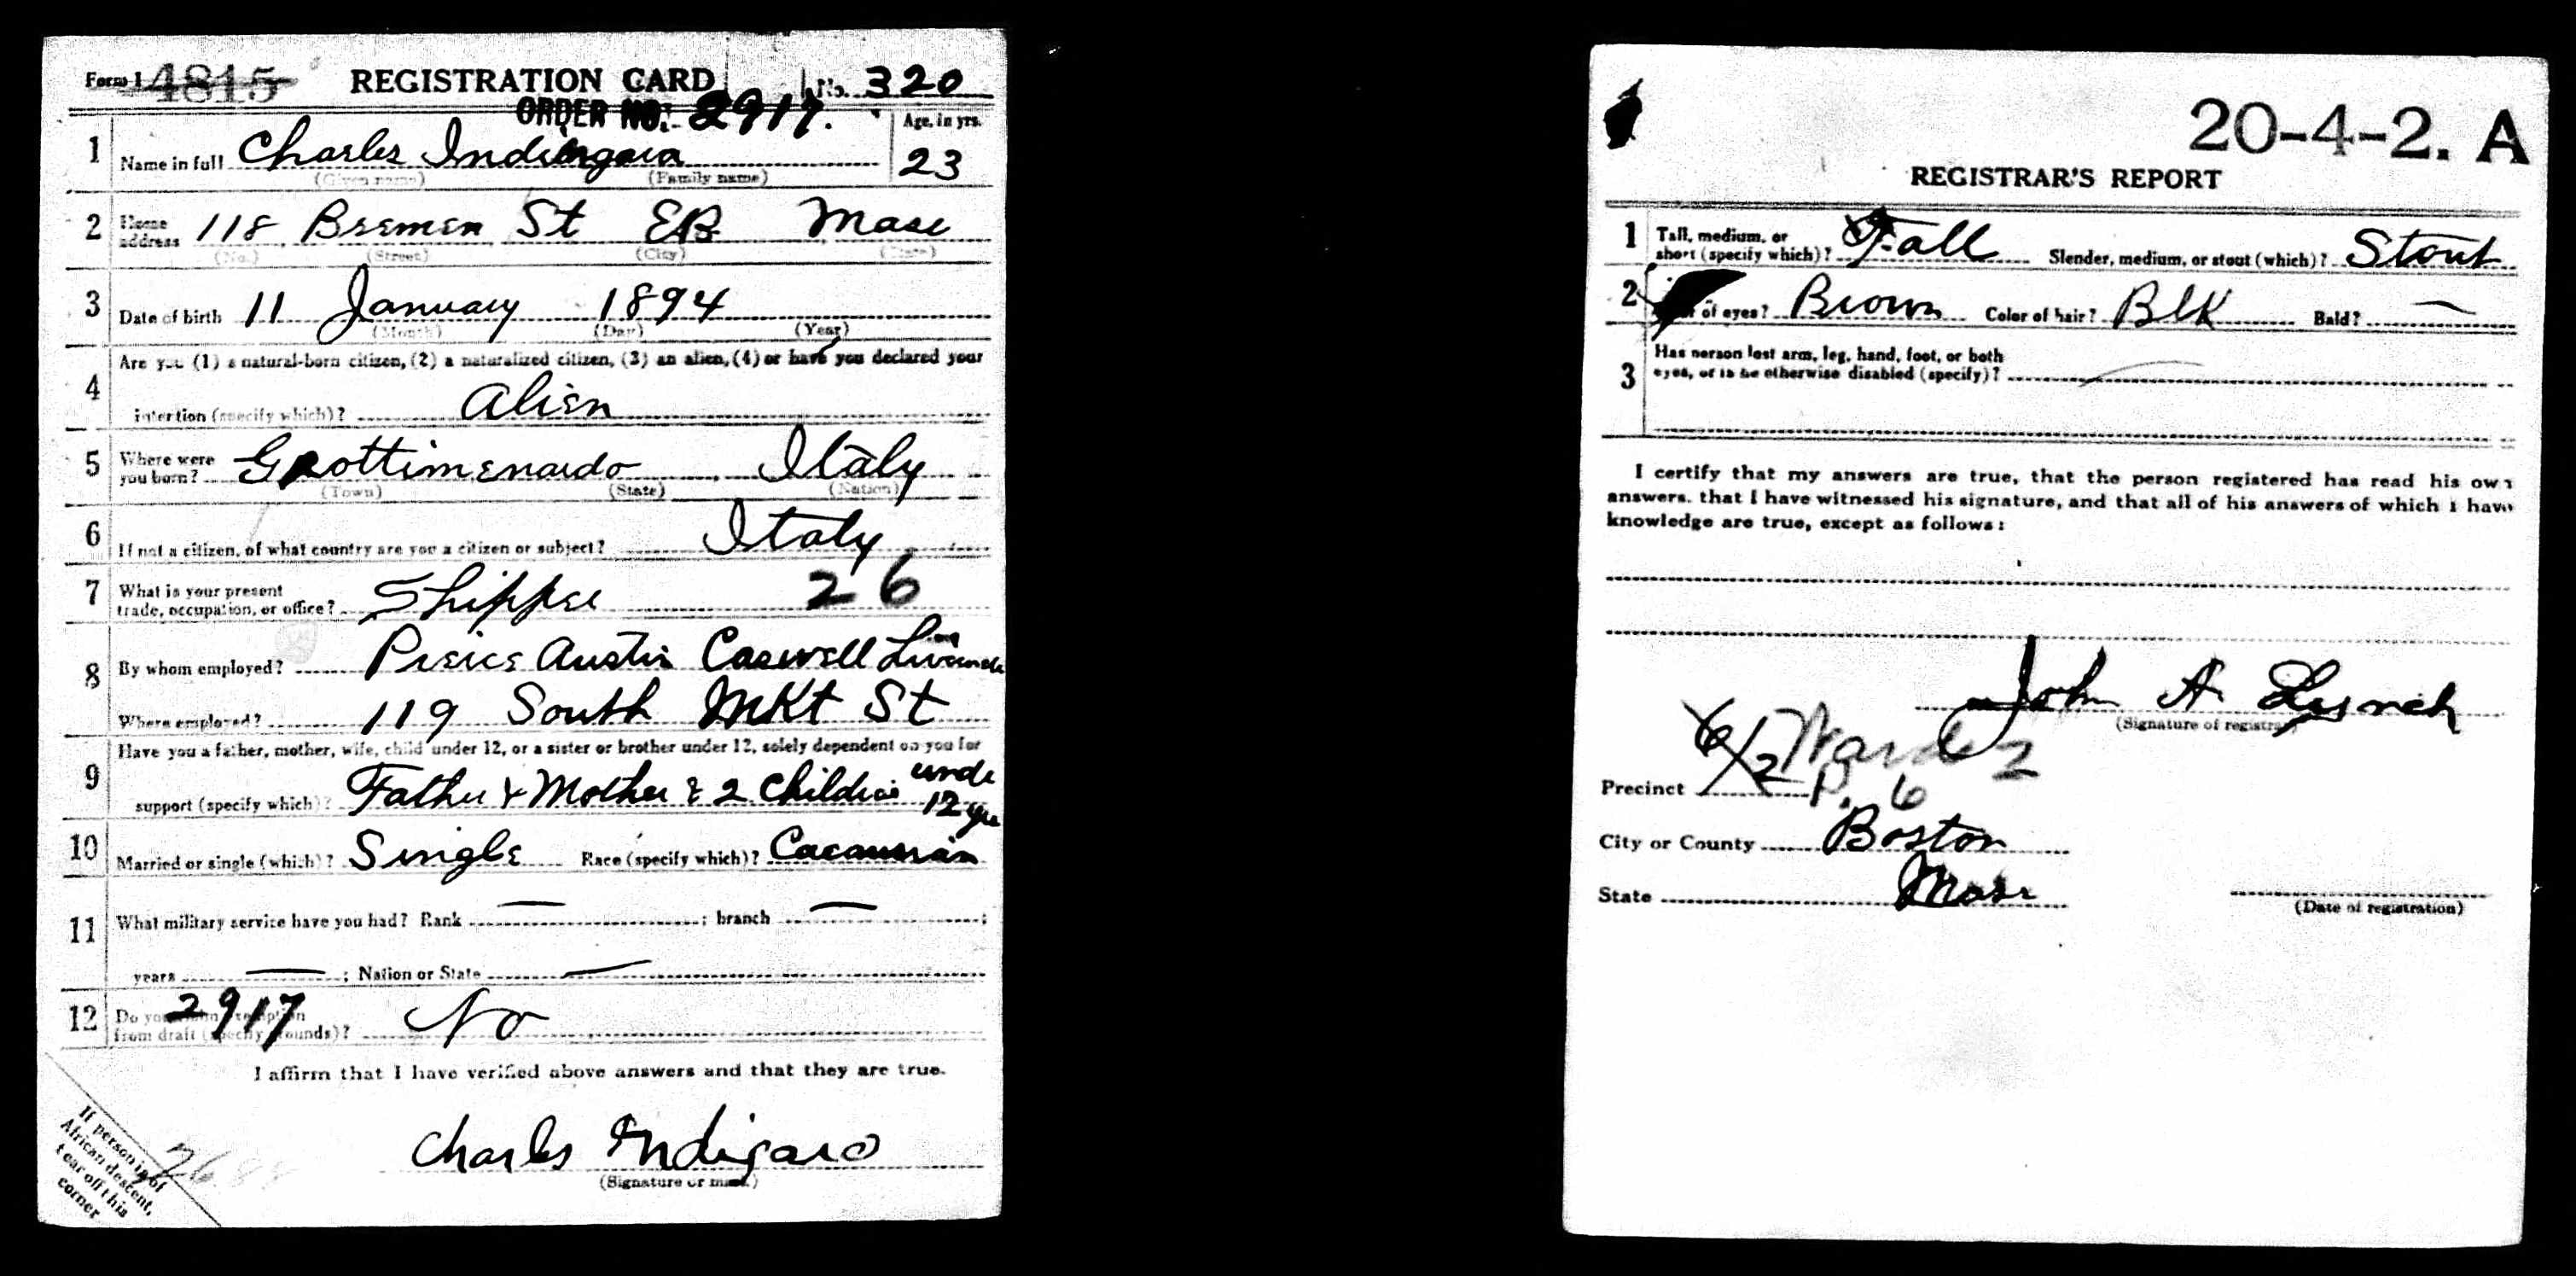 Form 1 4815 REGISTRATION CARD No. 320
ORDER NO. 2917.
Age, in yrs.
1 Name in full Charles 23
(Given name) (Family name)
2 Home address 118 Bremen St EB Mass
(No.) (Street) (City) (State)
3 Date of birth 11 January 1894
(Month) (Day) (Year)
Are you (1) a natural-born citizen, (2) a naturalized citizen, (3) an alien, (4) or have you declared your
4 intention (specify which)? Alien
5 Where were you born? Grottiminardo Italy
(Town) (State) (Nation)
6 If not a citizen, of what country are you a citizen or subject? Italy
7 What is your present
trade, occupation, or office? Shipper 26
8 By whom employed? Pierce Austin Caswell
Where employed? 119 South Mkt St
Have you a father, mother, wife, child under 12, or a sister or brother under 12, solely dependent on you for
9 support (specify which)? Father & Mother & 2 Children under 12 yrs
10 Married or single (which)? Single Race (specify which)? Caucasian
11 What military service have you had? Rank — ; branch — ;
years — ; Nation or State —
12 Do you claim exemption
from draft (specify grounds)? No
2917
I affirm that I have verified above answers and that they are true.
Charles Indigaro
(Signature or mark)
If person is of
African descent,
tear off this
corner
20-4-2. A
REGISTRAR'S REPORT
1 Tall, medium, or
short (specify which)? Tall Slender, medium, or stout (which)? Stout
2 of eyes? Brown Color of hair? Blk Bald? —
Has person lost arm, leg, hand, foot, or both
3 eyes, or is he otherwise disabled (specify)? —
I certify that my answers are true, that the person registered has read his own
answers, that I have witnessed his signature, and that all of his answers of which I have
knowledge are true, except as follows:
John A. Lynch
(Signature of registrar)
6/2 Ward 2
Precinct P. 6
City or County Boston
State Mass
(Date of registration)